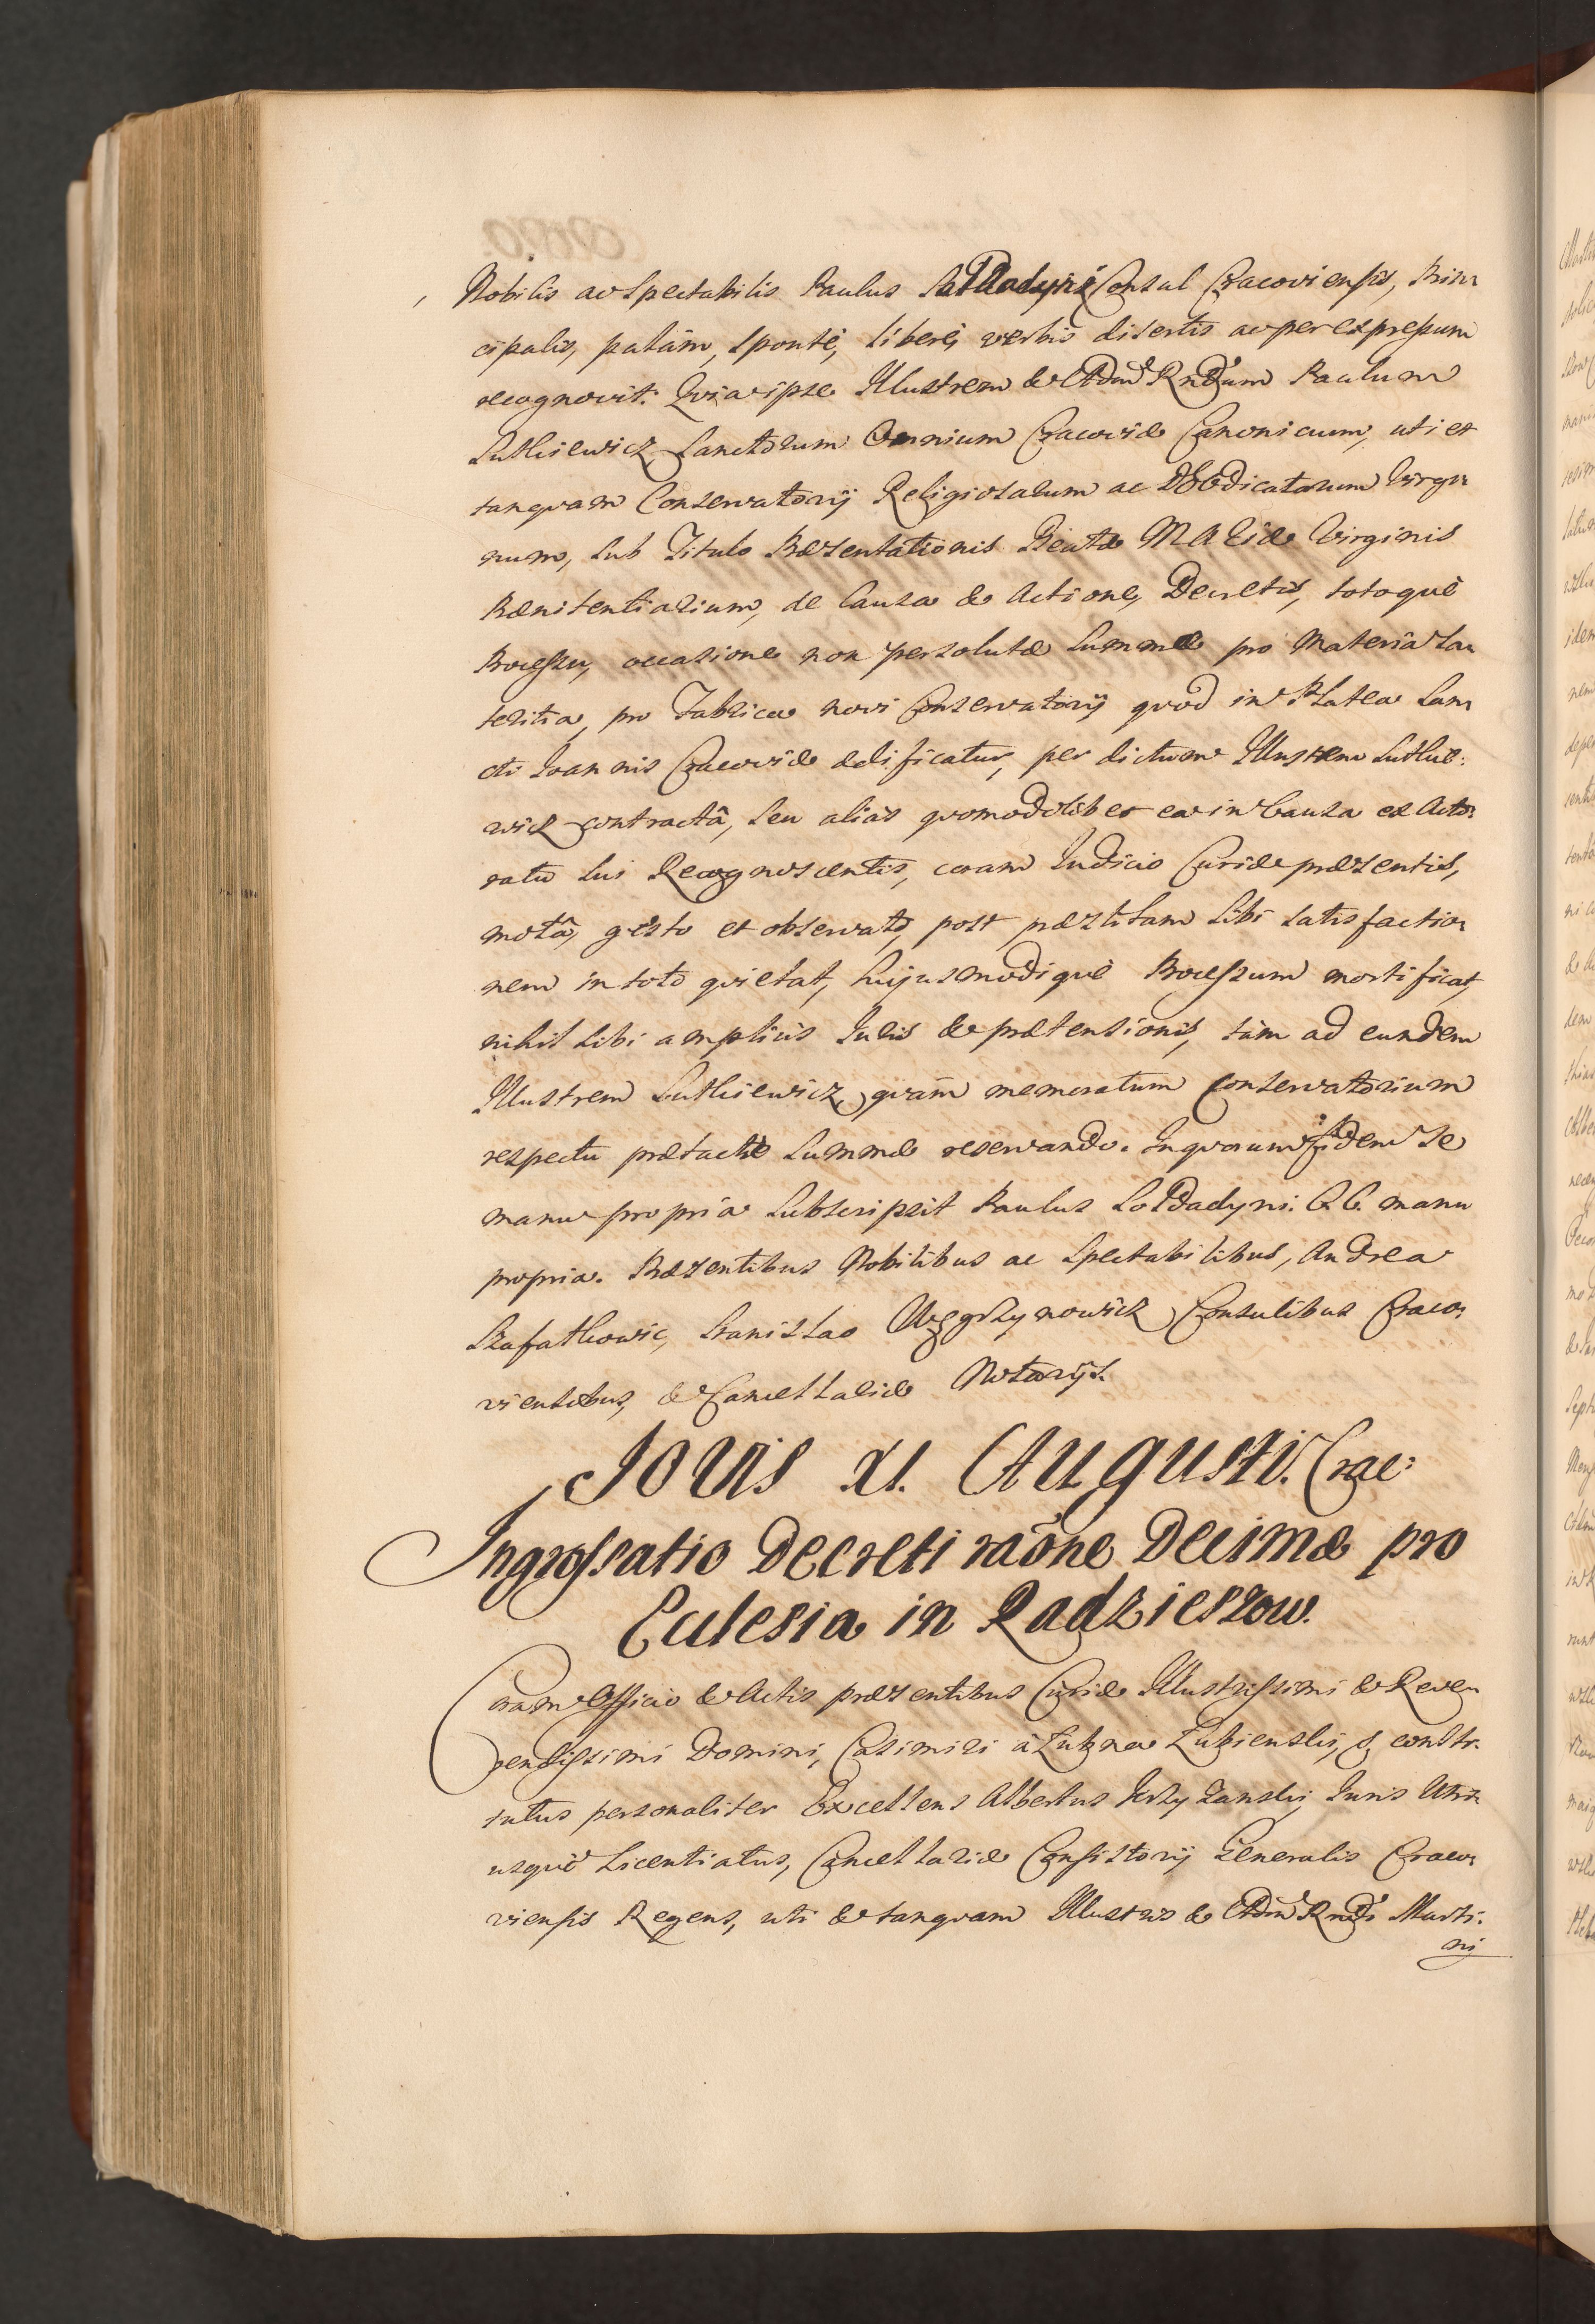 Nobilis ac Spectabilis Paulus Soldadyni Consul Cracoviensis, Prin-
cipalis, palàm, sponte, liberè, verbis disertis ac per expressum
recognovit. Quia ipse Illustrem & Adm Rndum Paulum
Sutkiewicz, Sanctorum Omnium Cracoviæ Canonicum, uti et
tanquam Conservatorij Religiosarum ac DEO dicatarum Virgi-
num, sub Titulo Præsentationis Beatæ MARiæ Virginis
Pænitentiarium, de Causa & Actione, Decretis, totoquè
Processu, occasione non persolutæ Summæ pro Materia La-
teritia, pro Fabrica novi Conservatorij quod in Platea San-
cti Joannis Cracoviæ ædificatur, per dictum Illustrem Sutkie:
wicz contractâ, seu aliàs quomodolibet ea in Causa ex Acto-
ratu sui Recognoscentis, coram Judicio Curiæ præsentis,
motâ, gesto et observato, post præstitam sibi satisfactio-
nem in toto quietat, hujusmodiquè Processum mortificat,
nihil sibi ampliùs Juris & prætensionis, tàm ad eundem
Illustrem Sutkiewicz, quàm memoratum Conservatorium
respectu prætactæ Summæ reservando. In quorum fidem se
manu propria subscripsit Paulus Soldadyni. C.C. manu
propria. Præsentibus Nobilibus ac Spectabilibus, Andrea
Szafatkowic, Stanislao Węgrzynowicz Consulibus Craco-
viensibus, & Cancellariæ Notarijs.
Jovis XI. Augusti. Crac:
Ingrossatio Decreti raõne Decimæ pro
Eclesia in Radzieszow.
Coram Officio & Actis præsentibus Curiæ Illustrissimi & Reve-
rendissimi Domini, Casimiri à Łubna Łubienski, & constі-
tutus personaliter Excellens Albertus Jerzy Zanski, Juris Utri-
usquè Licentiatus, Cancellariæ Consistorij Generalis Craco-
viensis Regens, uti & tanquam Illustris & Adm Rndi Marti-
nj